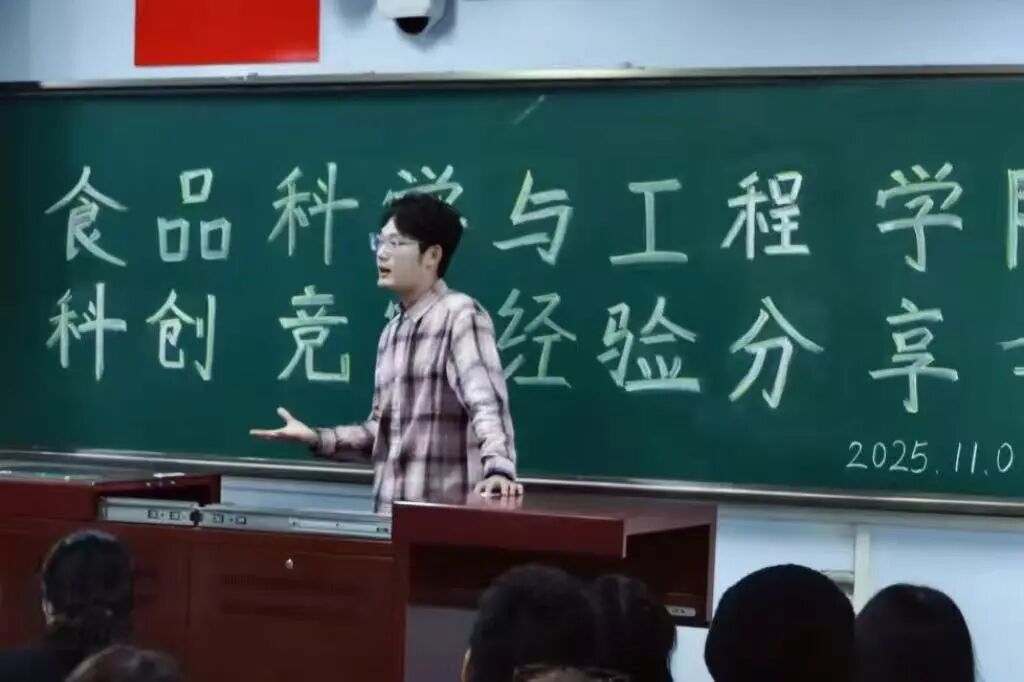 食品科学与工程学
科创竞经验分享
2025.11.0